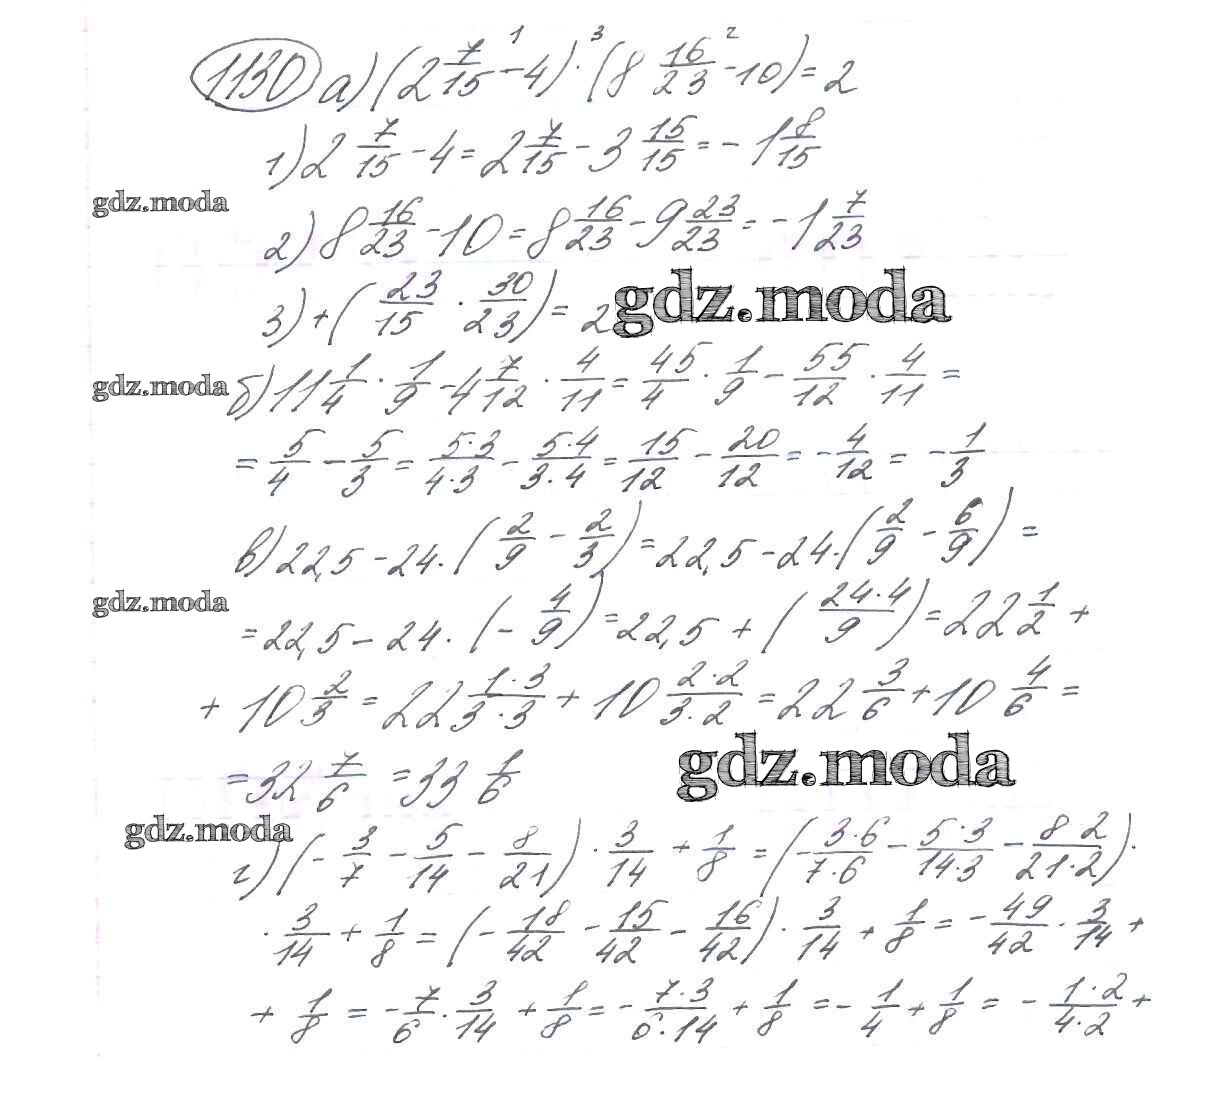 1130 а) (2 7/15 - 4) · (8 16/23 - 10) = 2
1) 2 7/15 - 4 = 2 7/15 - 3 15/15 = - 1 8/15
gdz.moda
2) 8 16/23 - 10 = 8 16/23 - 9 23/23 = - 1 7/23
3) + (23/15 · 30/23) = 2
gdz.moda
gdz.moda
б) 11 1/4 · 1/9 - 4 7/12 · 4/11 = 45/4 · 1/9 - 55/12 · 4/11 =
= 5/4 - 5/3 = 5·3/4·3 - 5·4/3·4 = 15/12 - 20/12 = - 4/12 = - 1/3
в) 22,5 - 24 · (2/9 - 2/3) = 22,5 - 24 · (2/9 - 6/9) =
gdz.moda
= 22,5 - 24 · (- 4/9) = 22,5 + (24·4/9) = 22 1/2 +
+ 10 2/3 = 22 1·3/3·3 + 10 2·2/3·2 = 22 3/6 + 10 4/6 =
= 32 7/6 = 33 1/6
gdz.moda
gdz.moda
г) (- 3/7 - 5/14 - 8/21) · 3/14 + 1/8 = (- 3·6/7·6 - 5·3/14·3 - 8·2/21·2) ·
· 3/14 + 1/8 = (- 18/42 - 15/42 - 16/42) · 3/14 + 1/8 = - 49/42 · 3/14 +
+ 1/8 = - 7/6 · 3/14 + 1/8 = - 7·3/6·14 + 1/8 = - 1/4 + 1/8 = - 1·2/4·2 +